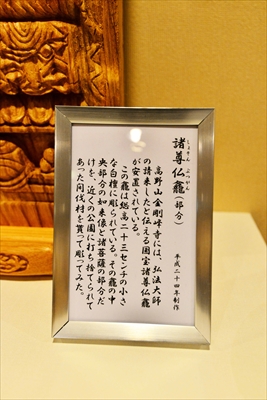 諸尊仏龕(部分)
しょそん ぶつがん
平成二十四年制作
高野山金剛峰寺には、弘法大師
の請来したと伝える国宝諸尊仏龕
が安置されている。
この龕は総高二十三センチの小さ
な白檀に彫られている。その龕の中
央部分の如来像と諸菩薩の部分だ
けを、近くの公園に打ち捨てられて
あった間伐材を貰って彫ってみた。